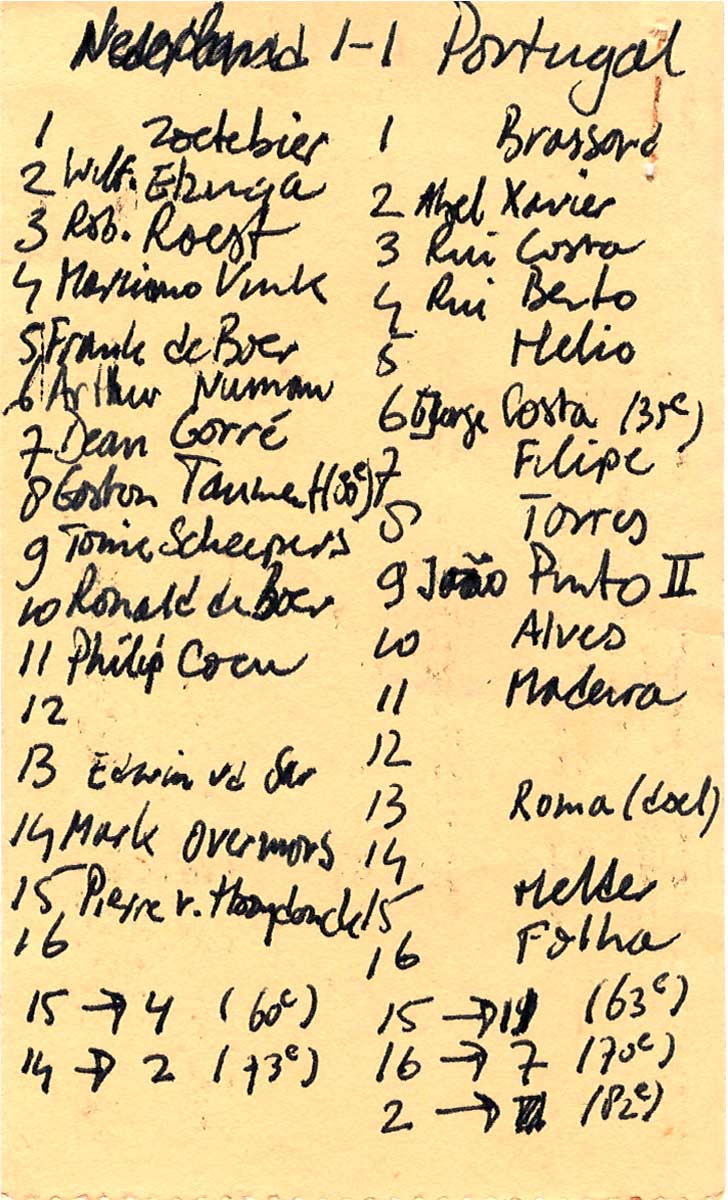 Nederland 1-1 Portugal
1 Zoetebier
2 Wilf. Elzinga
3 Rob. Roest
4 Marciano Vink
5 Frank de Boer
6 Arthur Numan
7 Dean Gorré
8 Gaston Taument (80e)
9 Tonie Scheepers
10 Ronald de Boer
11 Philip Cocu
12
13 Edwin vd Sar
14 Mark Overmars
15 Pierre v. Hooydonck
16
15 → 4 (60e)
14 → 2 (73e)
1 Brassard
2 Abel Xavier
3 Rui Costa
4 Rui Bento
5 Helio
6 Jorge Costa (35e)
7 Filipe
8 Torres
9 João Pinto II
10 Alves
11 Madeira
12
13 Roma (doel)
14
15 Helder
16 Folha
15 → 11 (63e)
16 → 7 (70e)
2 → (82e)